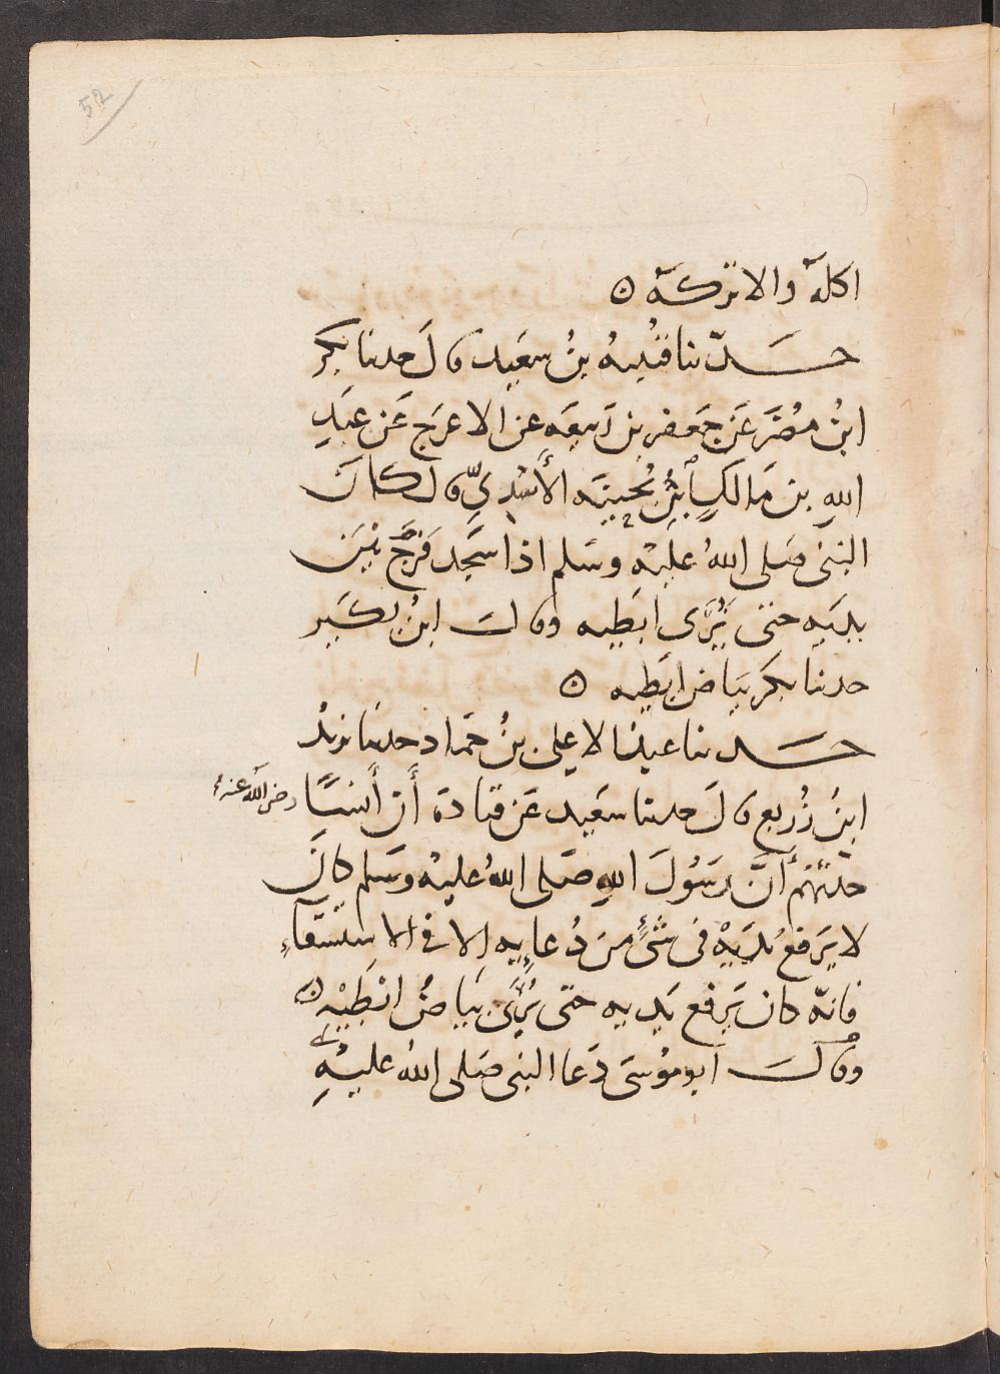 52
اكله والا تركه ه
حدثنا قتيبه بنُ سعَيد قالَ حدثنا بكر
ابنُ مُضَرَ عَن جَعفر بن رَبيعَه عن الاعرَج عَن عَبدِ
اللهِ بن مَالكٍ ابنِ بُحَينَه الأَسْدِيّ قال كانَ
النبى صَلى اللهُ عليْه وسَلم اذا سَجَد فَرَّجَ بَيْنَ
يديَه حتى يُرَى ابطَيه وقالَ ابنُ بكَير
حدثنا بكر بيَاض ابطَيه ه
حدثنا عبد الاعلى بنُ حَمّاد حدثنا يزيدُ
ابنُ زُرَيع قالَ حدثنا سَعيد عَن قتادة أن أنسًا رضى الله عنه
حدثهُم أنَّ رسَوُلَ اللهِ صَلى اللهُ عليْه وسَلم كانَ
لا يَرفعُ يَديَهْ فى شئٍ من دُعايِه إلا فى الاستسقاءِ
فانهّ كان يَرفع يَديه حتى يُرَى بيَاضُ ابْطَيْه ه
وقالَ أبو مُوسَى دَعا النبى صَلى اللهُ عليْهِ